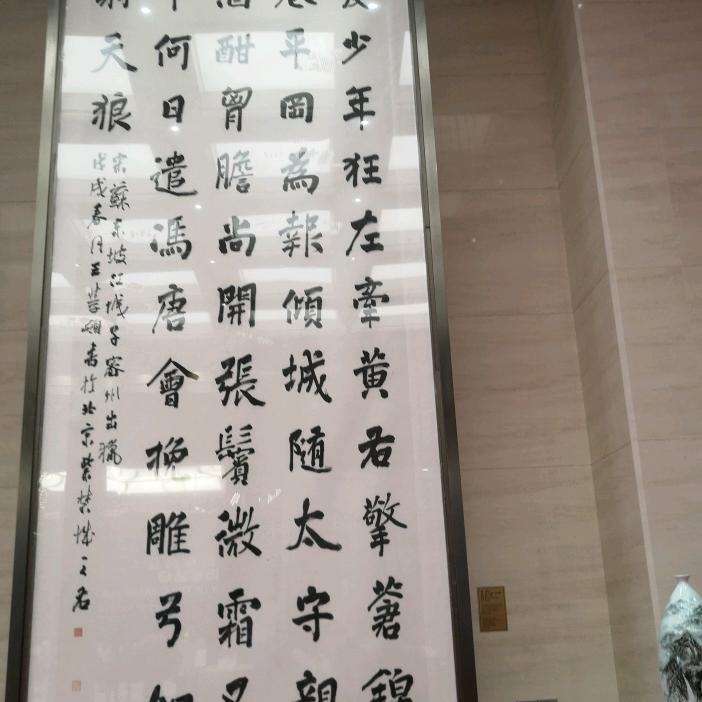 少年狂左牽黃右擎蒼錦
卷平岡為報傾城隨太守親
酒酣胷膽尚開張鬢微霜又
中何日遣馮唐會挽雕弓如
射天狼
宋蘇東坡江城子密州出獵
戊戌春月王書於北京紫禁城